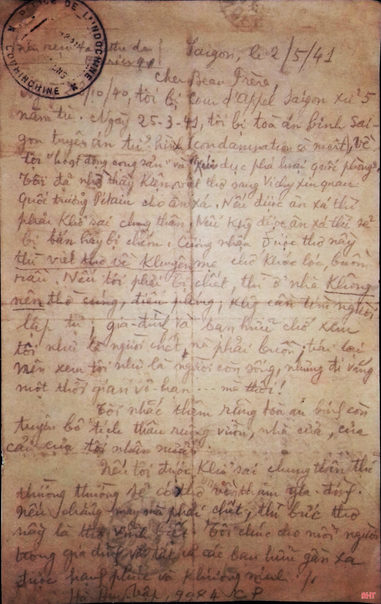 POLICE DE L'INDOCHINE
COCHINCHINE
Saigon, le 2/5/41
Cher Beau Frère,
10/40, tôi bị Cour d'Appel Saigon xử 5
năm tù. Ngày 25-3-41, tôi bị toà án binh Sai-
gon tuyên án tử hình (condamnation à mort), về
tội "hoạt động cộng sản" và
Tôi đã nhờ thầy Kiện viết thơ sang Vichy xin quan
Quốc trưởng Pétain cho ân xá. Nếu được ân xá thì
phải khổ sai chung thân. Nếu không được ân xá thì sẽ
bị bắn hay bị chém. Cậu nhận được thơ này
thì viết thơ về khuyên mẹ chớ khóc lóc buồn
rầu. Nếu tôi phải bị chết, thì ở nhà không
nên thờ cúng, điếu phúng; không cần
gia-đình và bạn hữu chớ xem
tôi như là người chết mà phải buồn; trái lại
nên xem tôi như là người còn sống, nhưng đi vắng
một thời gian vô-hạn ... mà thôi!
Tôi nhắc thêm rằng toà án binh còn
tuyên bố tịch thâu ruộng vườn, nhà cửa, của
cải của tôi
Nếu tôi được khổ sai chung thân thì
thường thường sẽ có thơ về thăm gia-đình.
Nếu chẳng may mà phải chết, thì bức thơ
này là thơ vĩnh biệt. Tôi chúc cho mọi người
trong gia đình và tất cả các bạn hữu gần xa
được hạnh phúc và
Hà Huy Tập, 9984 S.P